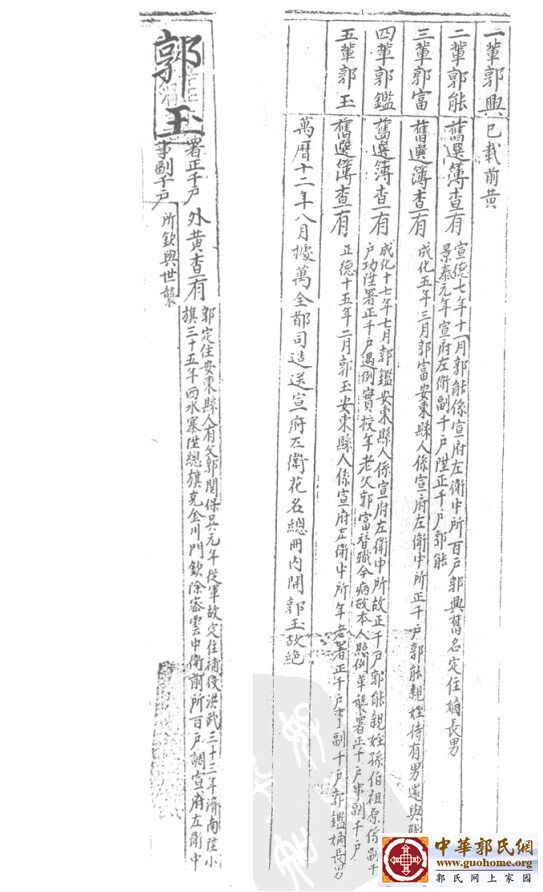 一輩郭興 已載前黃
二輩郭能 舊選簿查有 宣德七年十一月郭能係宣府左衛中所百戶郭興舊名定住嫡長男
景泰元年宣府左衛副千戶陞正千戶郭能
三輩郭富 舊選簿查有 成化五年三月郭富安東縣人係宣府左衛中所正千戶郭能親姪待有男還與職
四輩郭鑑 舊選簿查有 成化十七年七月郭鑑安東縣人係宣府左衛中所故正千戶郭能親姪孫伯祖原係副千
戶功陞署正千戶遇例實授年老父郭富替職今病故本人照例革襲署正千戶事副千戶
五輩郭玉 舊選簿查有 正德十五年二月郭玉安東縣人係宣府左衛中所年老署正千戶事副千戶郭鑑嫡長男
萬曆十二年八月據萬全都司造送宣府左衛花名總冊內開郭玉故絕
郭玉 署正千戶
事副千戶
外黃查有 郭定住安東縣人有父郭関保吳元年從軍故定住補役洪武三十三年濟南陞小
旗三十五年西水寨陞總旗克金川門欽除密雲中衛前所百戶調宣府左衛中
所欽與世襲
中華郭氏網
www.guohome.org
郭氏网上家园